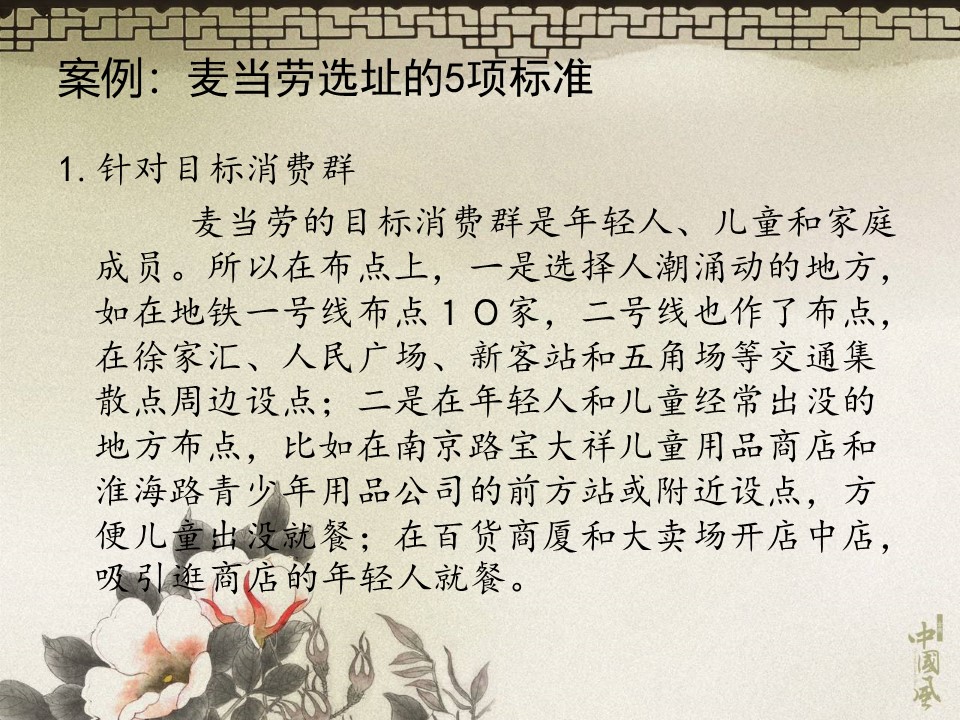 案例：麦当劳选址的5项标准
1.针对目标消费群
麦当劳的目标消费群是年轻人、儿童和家庭
成员。所以在布点上，一是选择人潮涌动的地方，
如在地铁一号线布点１Ｏ家，二号线也作了布点，
在徐家汇、人民广场、新客站和五角场等交通集
散点周边设点；二是在年轻人和儿童经常出没的
地方布点，比如在南京路宝大祥儿童用品商店和
淮海路青少年用品公司的前方站或附近设点，方
便儿童出没就餐；在百货商厦和大卖场开店中店，
吸引逛商店的年轻人就餐。
中國風